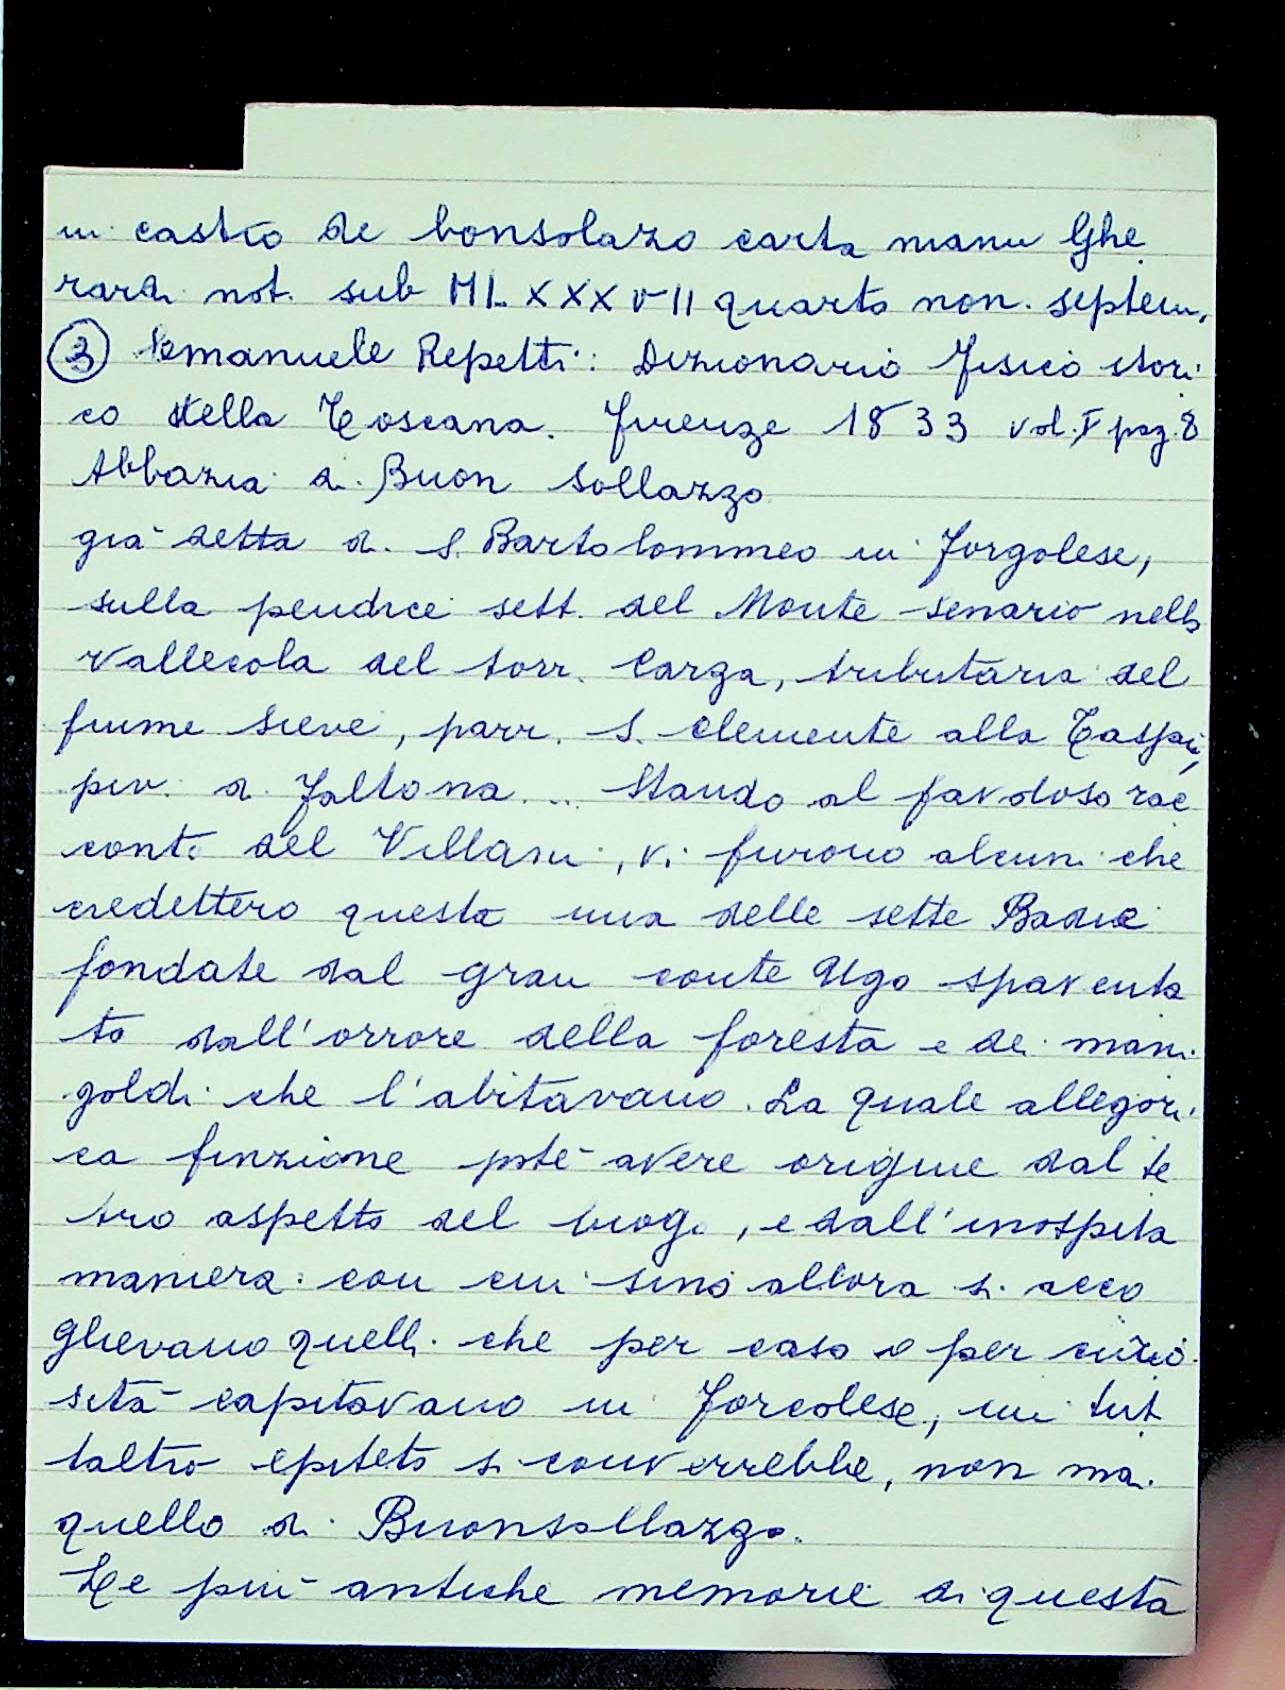 in castro de bonsolazo carta manu Ghe
rardi not. sub MLXXXVII quarto non. septem.
③ Emanuele Repetti: Dizionario fisico stori
co della Toscana. Firenze 1833 vol. I pag. 8
Abbazia di Buon Sollazzo
già detta di S. Bartolommeo in Forgolese,
sulla pendice sett. del Monte Senario nella
vallecola del torr. Carza, tributaria del
fiume Sieve, parr. S. Clemente alla
piv. di Faltona... Stando al favoloso rac
conto del Villani, vi furono alcuni che
credettero questa una delle sette Badie
fondate dal gran conte Ugo spaventa
to dall'orrore della foresta e dei mani
goldi che l'abitavano. La quale allegori
ca finzione poté avere origine dal te
tro aspetto del luogo, e dall'inospita
maniera con cui sino allora si acco
glievano quelli che per caso o per curio
sità capitavano in Forcolese, cui tut
taltro epiteto si converrebbe, non mai
quello di Buonsollazzo.
Le più antiche memorie di questa